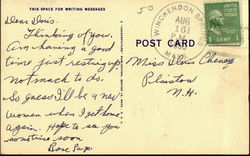 THIS SPACE FOR WRITING MESSAGES
Dear Dois.
Thinking of you.
Am having a good
time just resting up
not much to do.
So guess I'll be a new
women when I get home
again. Hope to see you
sometime soon
WINCHENDON SPRINGS
AUG
16
P.M.
MASS.
1 CENT 1
POST CARD
Miss Cheney
Plaistow
N.H.